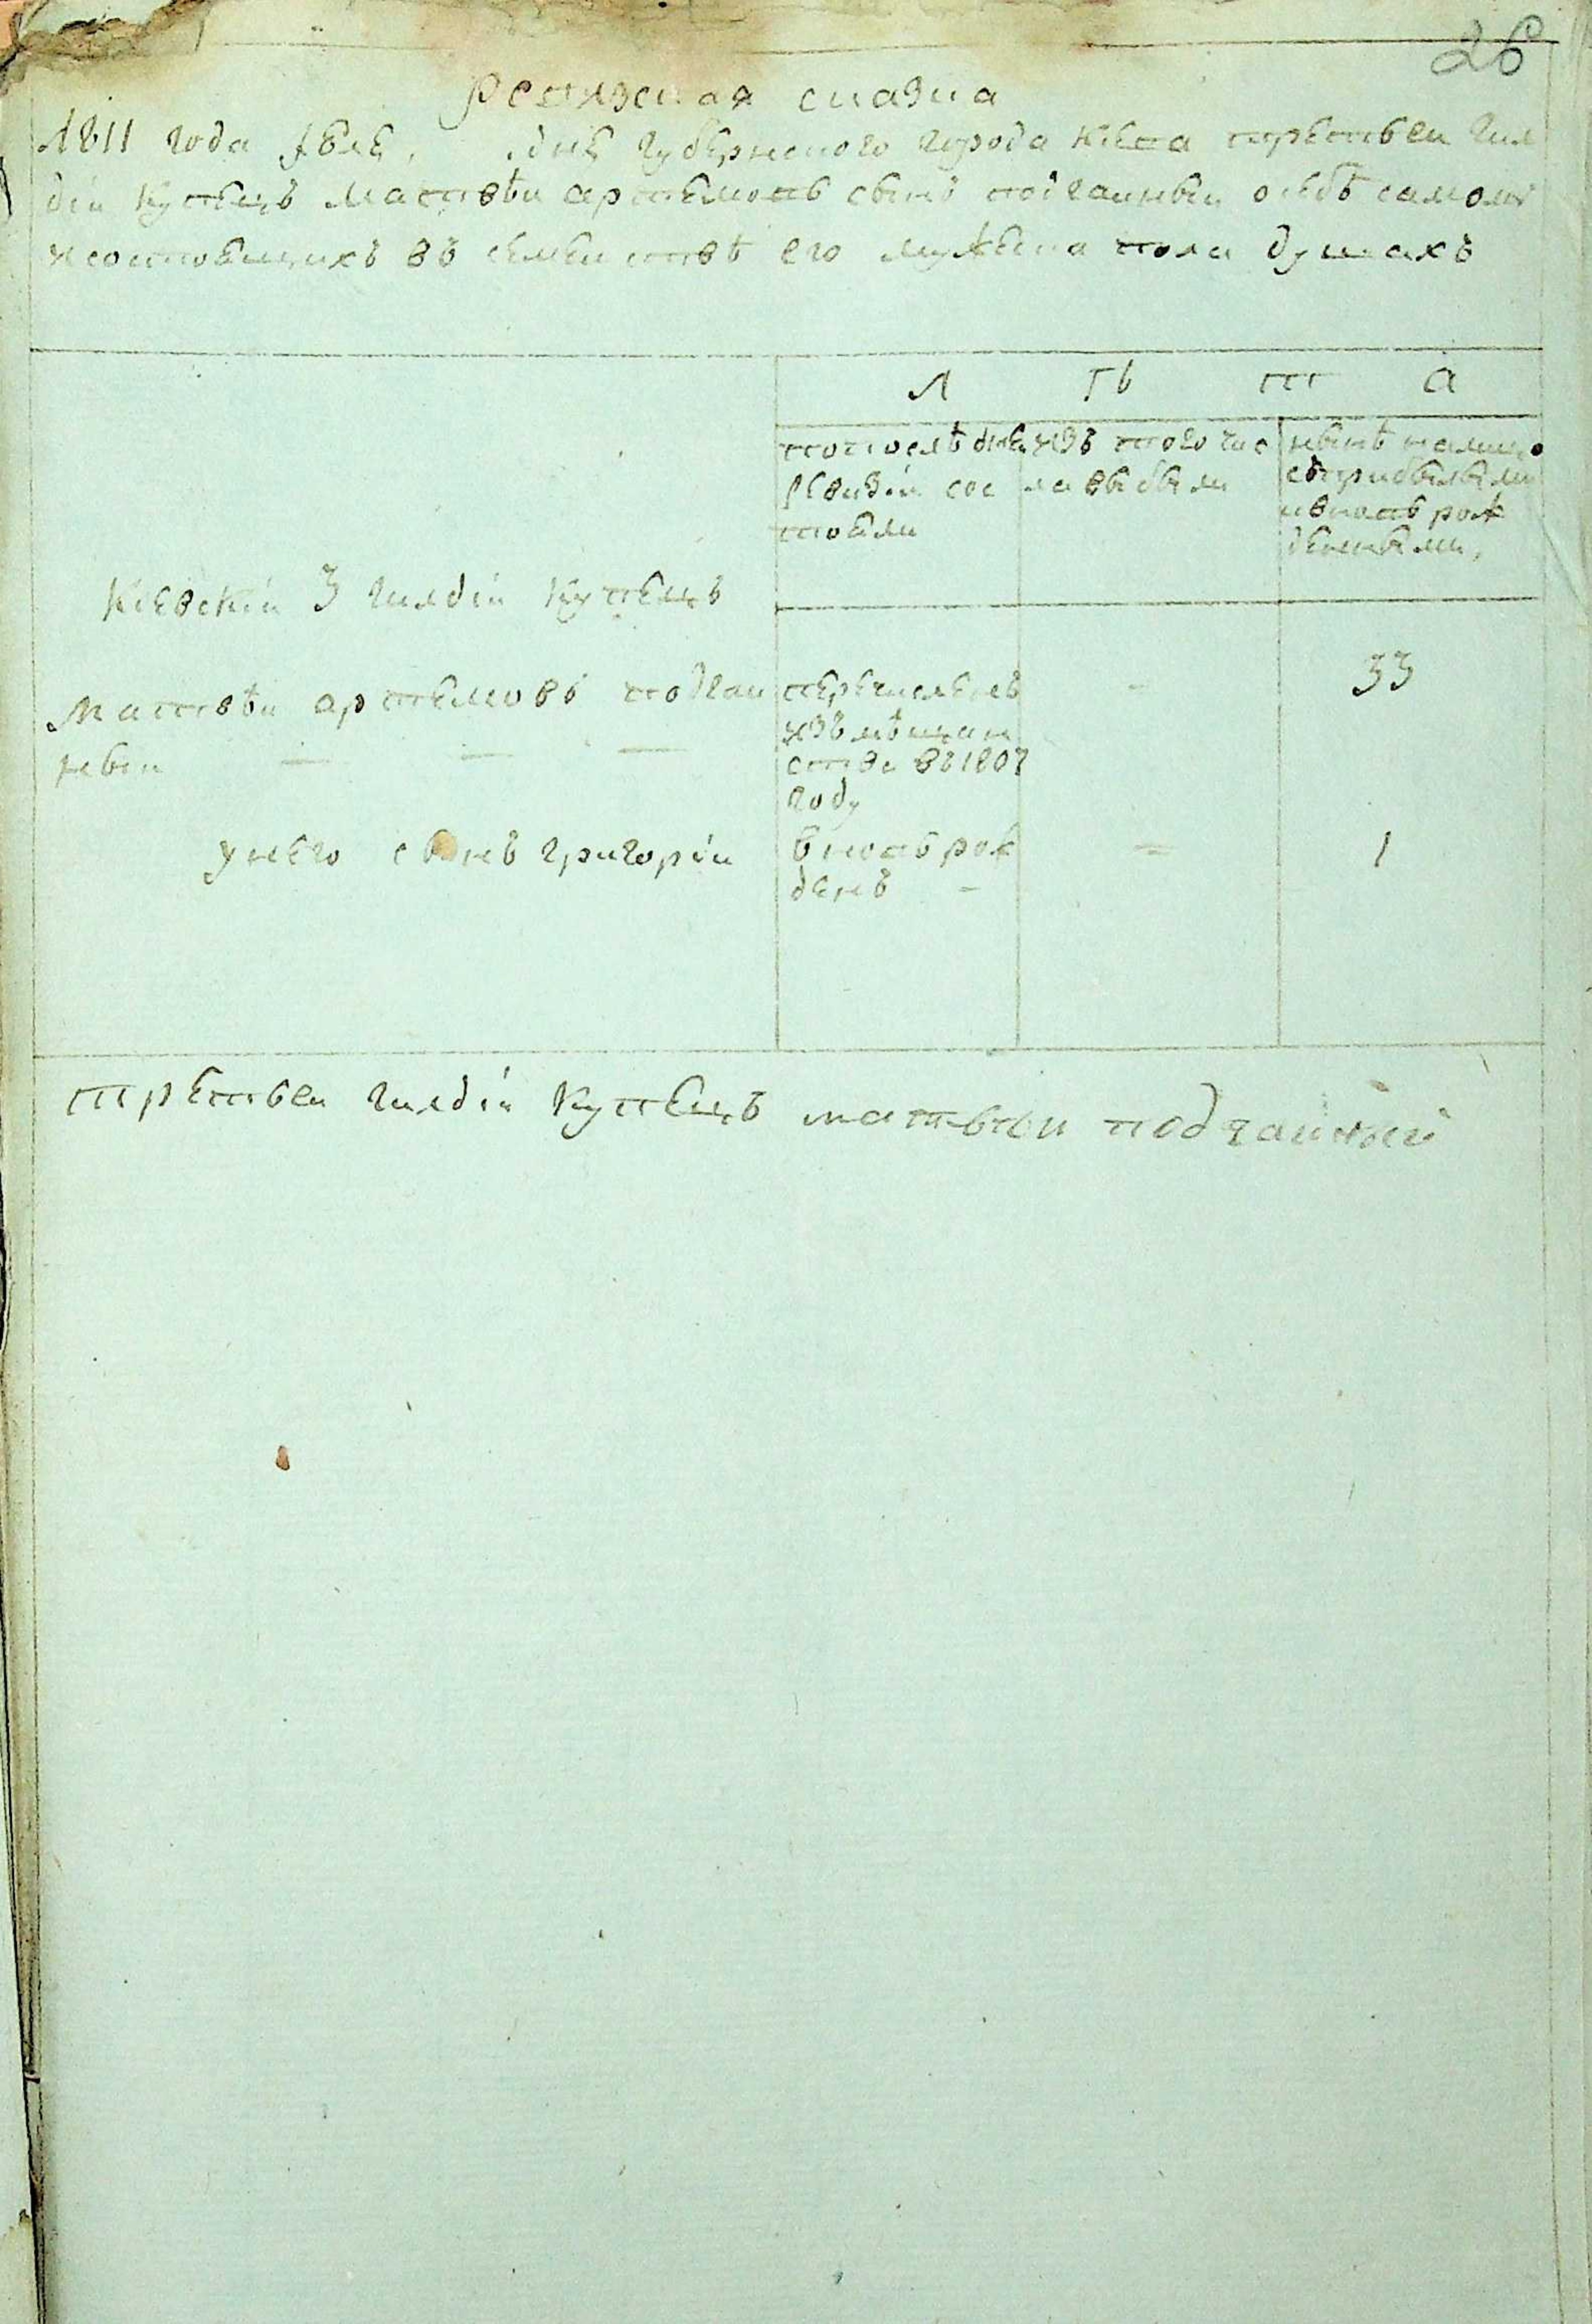 26
Ревизская сказка
1811 года июля, дня губернского города Киева третьей гил
дїи купецъ Матвѣй Артемовъ сынъ Подгайный о себѣ самомъ
и состоящихъ въ семействѣ его мужеска пола душахъ
Л Ѣ Т А
по последней
ревизїи сос
тояли
изъ того чис
ла выбыли
нынѣ налицо
съ прибылыми
и вновь рож
денными,
Кїевскїй 3 гилдїи купецъ
Матвѣй Артемовъ Подгай
ный — — —
перечисленъ
изъ мѣщан
ства въ 1807
году
-
33
у него сынъ Григорїй
вновь рож
денъ -
-
1
третьей гилдїи купецъ матвеи подгайный